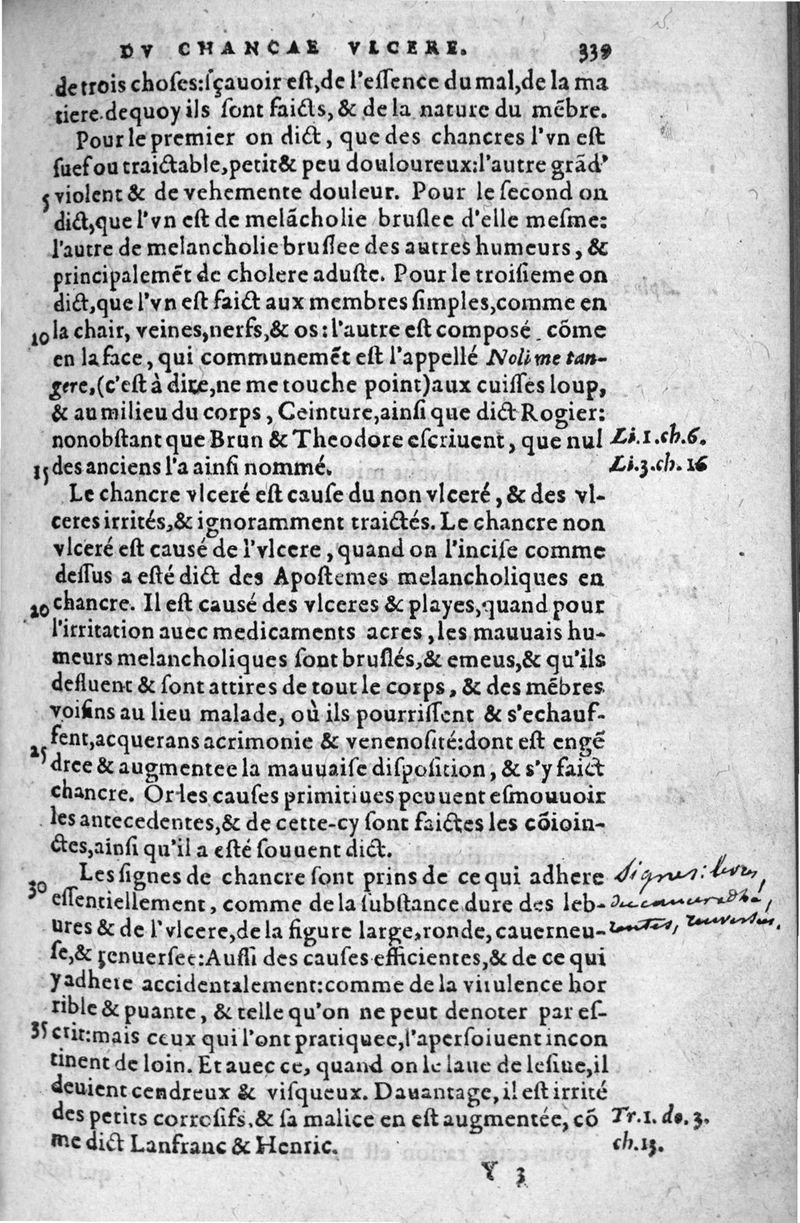 DV CHANCAE VLCERE. 339
de trois choses: sçauoir est, de l'essence du mal, de la ma
tiere dequoy ils sont faicts, & de la nature du mẽbre.
Pour le premier on dict, que des chancres l'vn est
suef ou traictable, petit & peu douloureux: l'autre grãd'
5 violent & de vehemente douleur. Pour le second on
dict, que l'vn est de melãcholie bruslee d'elle mesme:
l'autre de melancholie bruslee des autres humeurs, &
principalemẽt de cholere aduste. Pour le troisieme on
dict, que l'vn est faict aux membres simples, comme en
10 la chair, veines, nerfs, & os: l'autre est composé. cõme
en la face, qui communemẽt est l'appellé Noli me tan-
gere, (c'est à dire, ne me touche point) aux cuisses loup,
& au milieu du corps, Ceinture, ainsi que dict Rogier:
nonobstant que Brun & Theodore escriuent, que nul Li.1.ch.6.
15 des anciens l'a ainsi nommé. Li.3.ch.16
Le chancre vlceré est cause du non vlceré, & des vl-
ceres irrités, & ignoramment traictés. Le chancre non
vlceré est causé de l'vlcere, quand on l'incise comme
dessus a esté dict des Apostemes melancholiques en
20 chancre. Il est causé des vlceres & playes, quand pour
l'irritation auec medicaments acres, les mauuais hu-
meurs melancholiques sont bruslés, & emeus, & qu'ils
defluent & sont attires de tout le corps, & des mẽbres
voisins au lieu malade, où ils pourrissent & s'echauf-
25 fent, acquerans acrimonie & venenosité: dont est engẽ
dree & augmentee la mauuaise disposition, & s'y faict
chancre. Or les causes primitiues peuuent esmouuoir
les antecedentes, & de cette-cy sont faictes les cõioin-
ctes, ainsi qu'il a esté souuent dict.
30 Les signes de chancre sont prins de ce qui adhere
essentiellement, comme de la substance dure des leb-
ures & de l'vlcere, de la figure large, ronde, cauerneu-
se, & renuersee: Aussi des causes efficientes, & de ce qui
y adhere accidentalement: comme de la virulence hor
rible & puante, & telle qu'on ne peut denoter par es-
35 crit: mais ceux qui l'ont pratiquee, l'apersoiuent incon
tinent de loin. Et auec ce, quand on le laue de lesiue, il
deuient cendreux & visqueux. Dauantage, il est irrité
des petits corrosifs, & sa malice en est augmentée, cõ Tr.1. do. 3.
me dict Lanfranc & Henric. ch.13.
Y 3